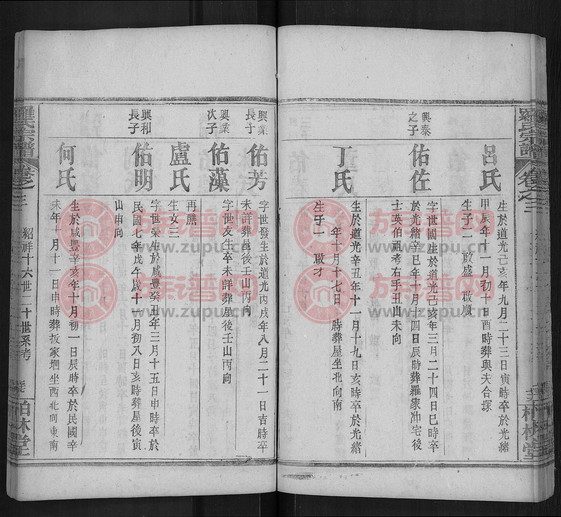 羅氏宗譜
卷之三
呂氏
生於道光己亥年九月二十三日寅時卒於
甲辰年十一月初十日酉時葬與夫合塚
生子二 啟盛 啟廣
興泰之子
佑佐
字世國生於道光己亥年三月二十四日巳時卒
於光緒辛巳年十月十四日辰時葬羅家沖宅後
士英伯祖考右手丑山未向
丁氏
生於道光辛丑年十一月十九日亥時卒於光緒
年十月十七日 時葬屋坐北向南
生子一 啟才
興業長子
佑芳
字世發生於道光丙戌年八月二十一日吉時卒
未詳葬屋後壬山丙向
興業次子
佑漢
字世友生卒未詳葬屋後壬山丙向
盧氏
再醮
生女三
興和長子
佑明
字世榮生於咸豐癸丑年三月十五日申時卒於
民國七年戊午歲十一月初八日亥時葬屋後寅
山申向
何氏
生於咸豐辛亥年十月初一日辰時卒於民國辛
未年十月十一日申時葬坂家壪坐西北向東南
羅氏宗譜
卷之三
紹祥十六世二十世系考
柏林堂
族谱网
www.zupu.cn